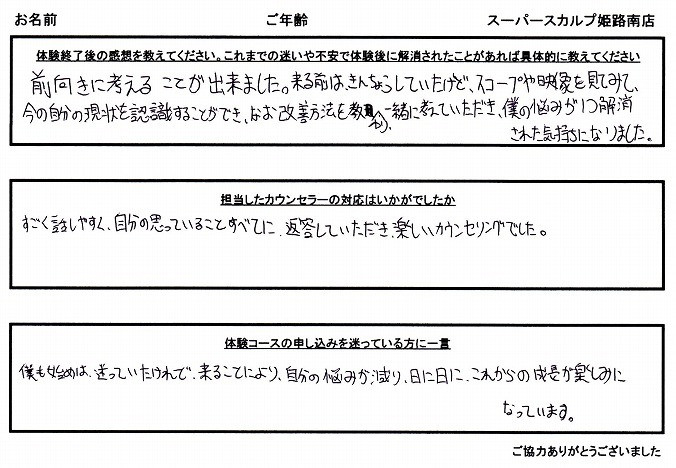 お名前　ご年齢　スーパースカルプ姫路南店
体験終了後の感想を教えてください。これまでの迷いや不安で体験後に解消されたことがあれば具体的に教えてください
前向きに考えることが出来ました。来る前は、きんちょうしていたけど、スコープや映像を見てみて、
今の自分の現状を認識することができ、なお改善方法を教わり、一緒に考えていただき、僕の悩みが1つ解消
された気持ちになりました。
担当したカウンセラーの対応はいかがでしたか
すごく話しやすく、自分の思っていることすべてに、返答していただき、楽しいカウンセリングでした。
体験コースの申し込みを迷っている方に一言
僕も始めは、迷っていたけれど、来ることにより、自分の悩みが減り、日に日に、これからの成長が楽しみに
なっています。
ご協力ありがとうございました